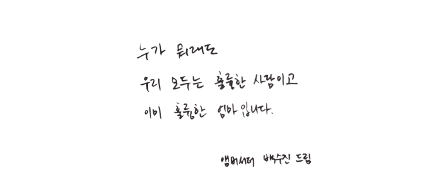 누가 뭐래도
우리 모두는 훌륭한 사람이고
이미 훌륭한 엄마입니다.
앰버서더 백수진 드림